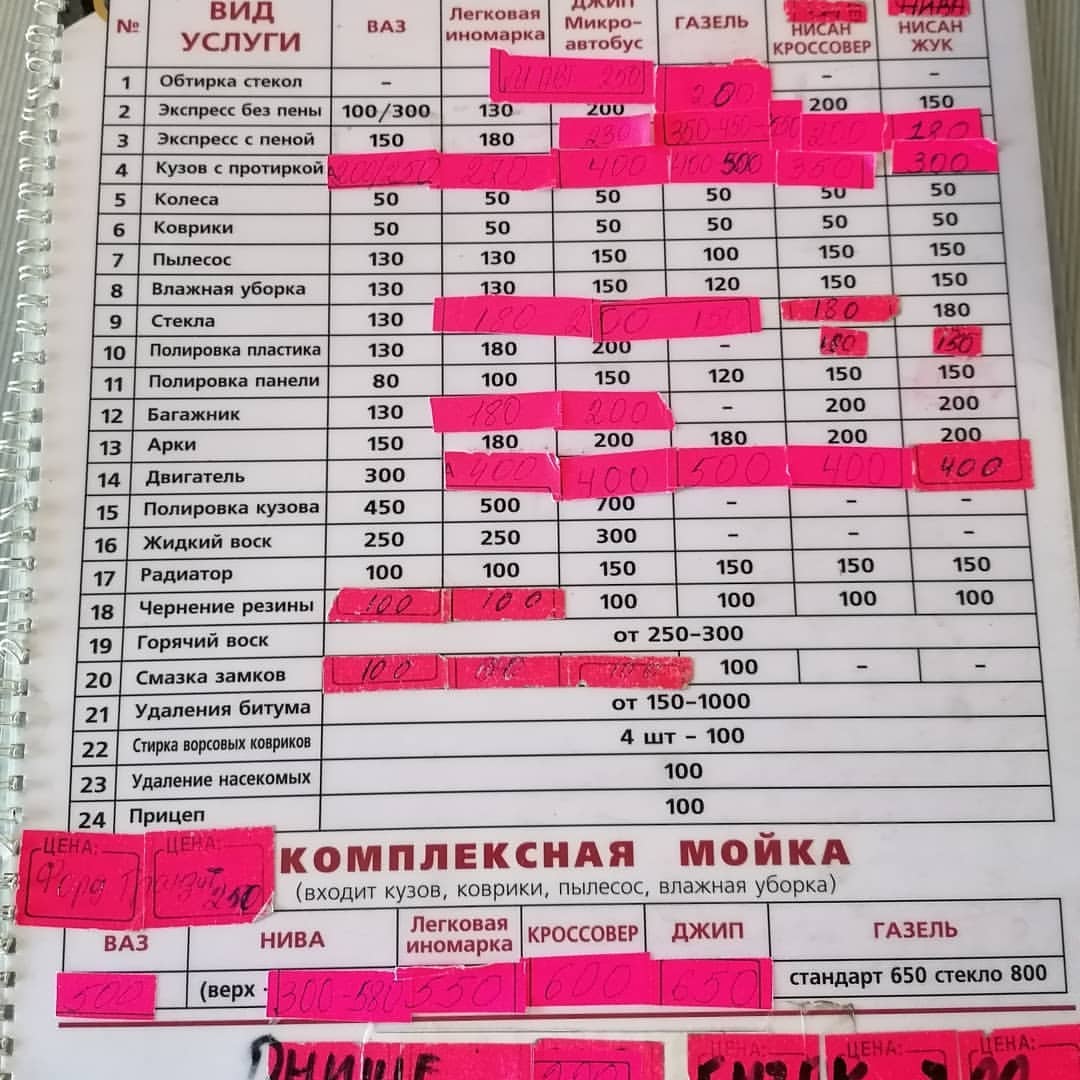 № ВИД УСЛУГИ ВАЗ Легковая иномарка ДЖИП Микро-автобус ГАЗЕЛЬ НИСАН КРОССОВЕР НИВА НИСАН ЖУК
1 Обтирка стекол – 250 200 – –
2 Экспресс без пены 100/300 130 200 200 150
3 Экспресс с пеной 150 180 230 350-450 200 180
4 Кузов с протиркой 200/250 270 400 400 500 350 300
5 Колеса 50 50 50 50 50 50
6 Коврики 50 50 50 50 50 50
7 Пылесос 130 130 150 100 150 150
8 Влажная уборка 130 130 150 120 150 150
9 Стекла 130 180 200 150 180 180
10 Полировка пластика 130 180 200 – 180 150
11 Полировка панели 80 100 150 120 150 150
12 Багажник 130 180 200 – 200 200
13 Арки 150 180 200 180 200 200
14 Двигатель 300 400 400 500 400 400
15 Полировка кузова 450 500 700 – – –
16 Жидкий воск 250 250 300 – – –
17 Радиатор 100 100 150 150 150 150
18 Чернение резины 100 100 100 100 100 100
19 Горячий воск от 250–300
20 Смазка замков 100 100 100 100 – –
21 Удаления битума от 150–1000
22 Стирка ворсовых ковриков 4 шт – 100
23 Удаление насекомых 100
24 Прицеп 100
ЦЕНА: ЦЕНА:
Форд Транзит 250
КОМПЛЕКСНАЯ МОЙКА
(входит кузов, коврики, пылесос, влажная уборка)
ВАЗ НИВА Легковая иномарка КРОССОВЕР ДЖИП ГАЗЕЛЬ
500 (верх - 300-580 550 600 650 стандарт 650 стекло 800
ЦЕНА: ЦЕНА: ЦЕНА:
ДНИЩЕ 200